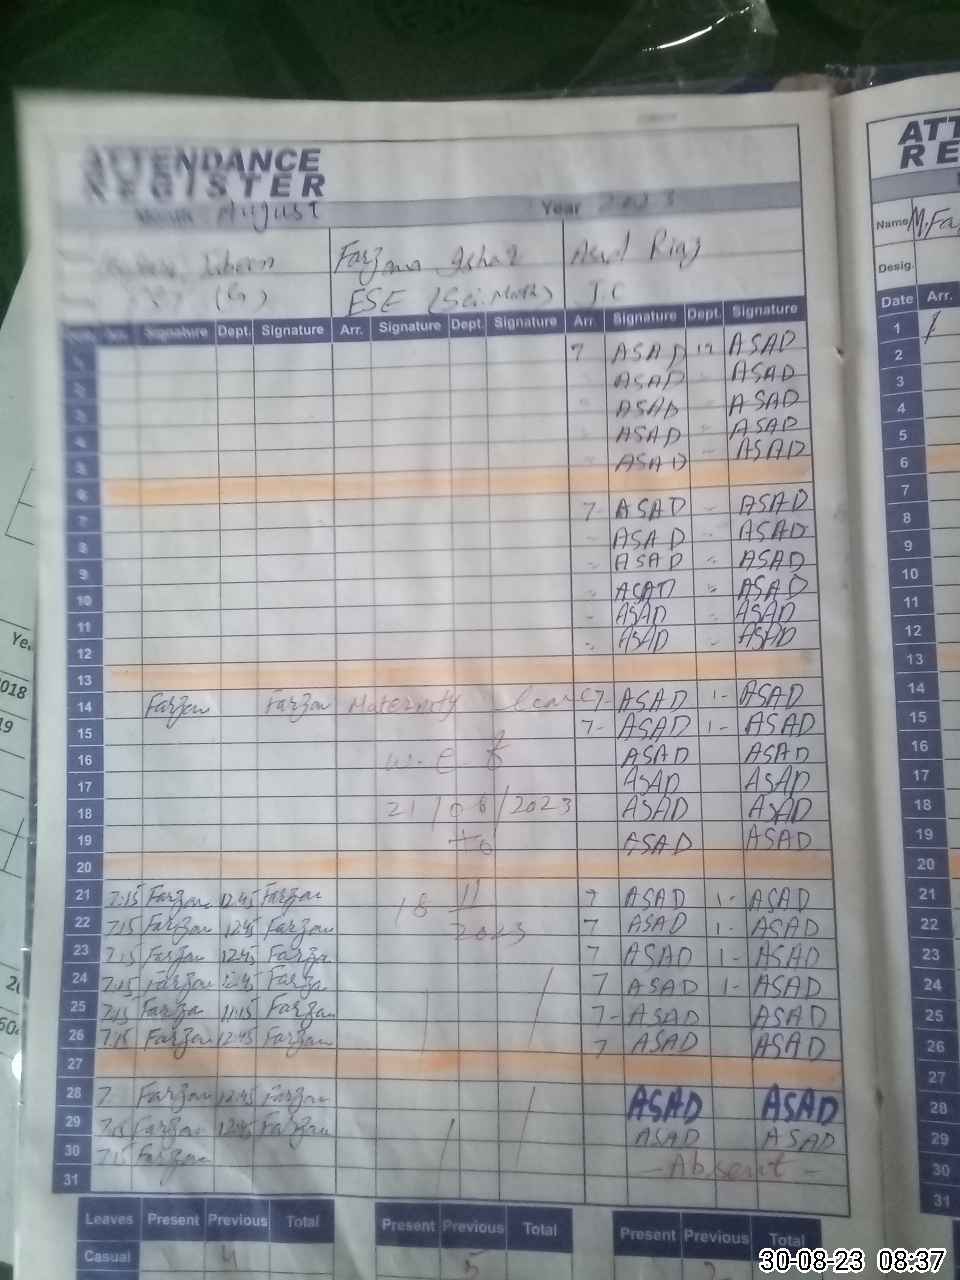 ATTENDANCE
REGISTER
August Year 2023
Farzana Ishaq Asad Riaz
(G) ESE (Sci. Math) J.C
Signature Dept. Signature Arr. Signature Dept. Signature Arr. Signature Dept. Signature
1 7 ASAD 12 ASAD
2 ASAD ASAD
3 ASAD ASAD
4 ASAD ASAD
5 ASAD ASAD
6
7 7- ASAD ASAD
8 ASAD ASAD
9 ASAD ASAD
10 ASAD ASAD
11 ASAD ASAD
12 ASAD ASAD
13
14 Farzan Farzan Maternity leave 7- ASAD 1- ASAD
15 7- ASAD 1- ASAD
16 w.e.f ASAD ASAD
17 ASAD ASAD
18 21/08/2023 ASAD ASAD
19 to ASAD ASAD
20
21 7:15 Farzan 12:45 Farzan 18 11 7 ASAD 1- ASAD
22 7:15 Farzan 12:45 Farzan 2023 7 ASAD 1- ASAD
23 7:15 Farzan 12:45 Farzan 7 ASAD 1- ASAD
24 7:15 Farzan 12:45 Farzan 7 ASAD 1- ASAD
25 7:15 Farzan 11:15 Farzan 7- ASAD ASAD
26 7:15 Farzan 12:45 Farzan 7 ASAD ASAD
27
28 7 Farzan 12:45 Farzan ASAD ASAD
29 7:15 Farzan 12:45 Farzan ASAD ASAD
30 7:15 Farzan - Absent -
31
Leaves Present Previous Total Present Previous Total Present Previous Total
Casual 4 5
ATT
RE
Name M.Fa
Desig.
Date Arr.
1
2
3
4
5
6
7
8
9
10
11
12
13
14
15
16
17
18
19
20
21
22
23
24
25
26
27
28
29
30
31
2018
30-08-23 08:37